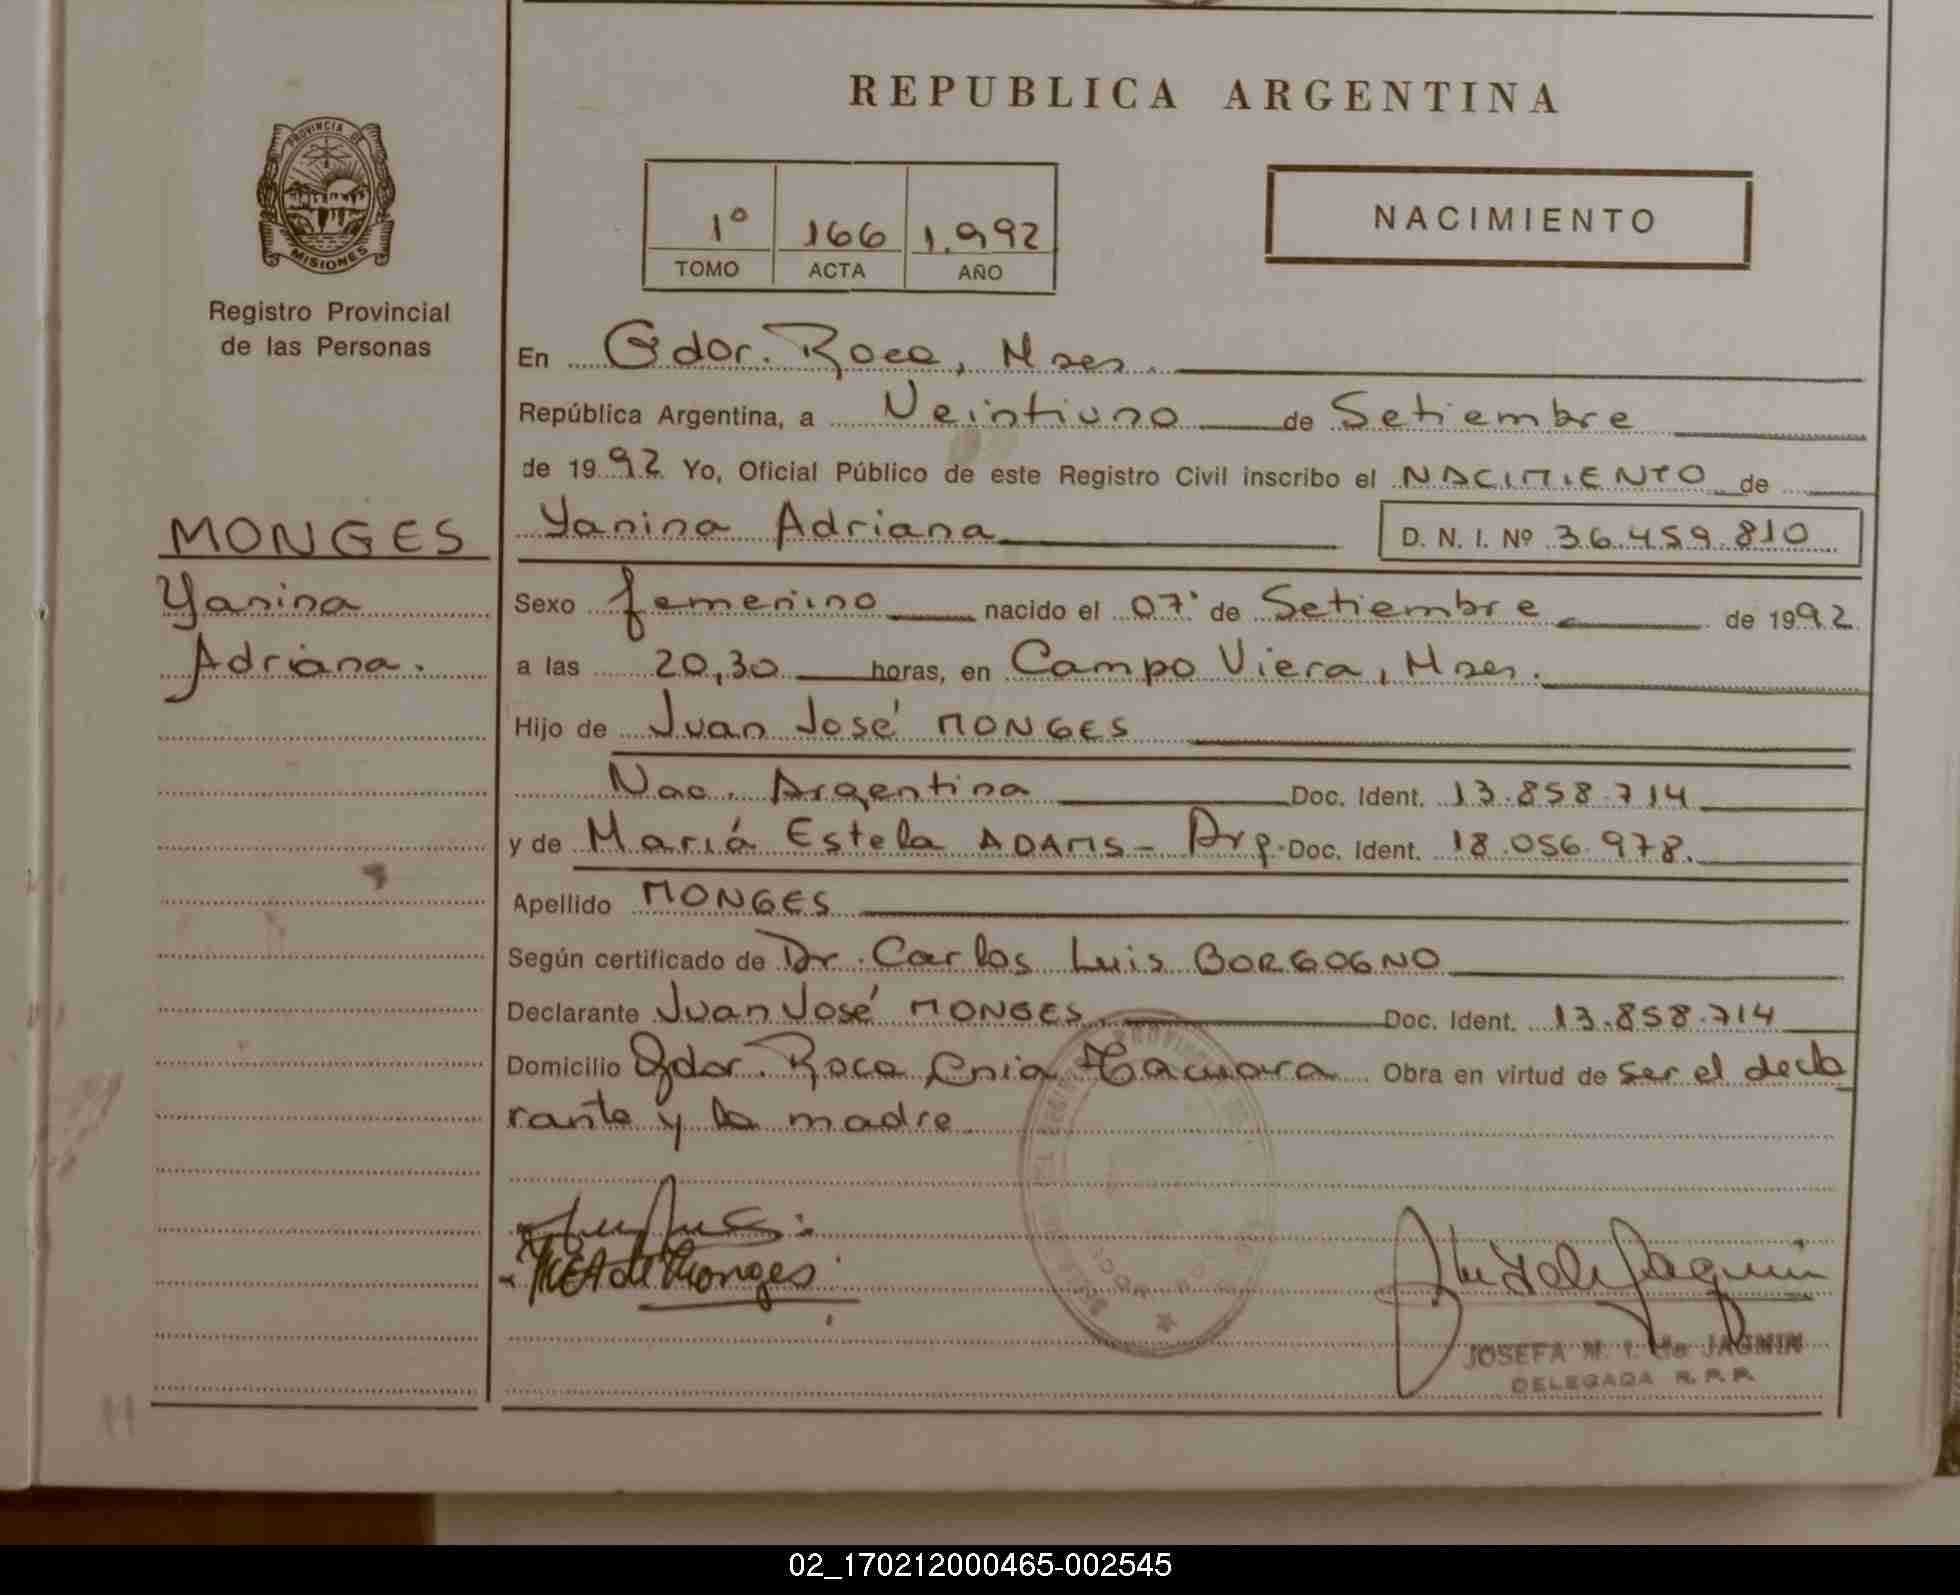 REPUBLICA ARGENTINA
PROVINCIA DE
MISIONES
Registro Provincial
de las Personas
1º 166 1.992
TOMO ACTA AÑO
NACIMIENTO
En Gdor. Roca, Mnes.
República Argentina, a Veintiuno de Setiembre
de 1992 Yo, Oficial Público de este Registro Civil inscribo el NACIMIENTO de
MONGES
Yanina
Adriana.
Yanina Adriana D. N. I. Nº 36.459.810
Sexo femenino nacido el 07 de Setiembre de 1992
a las 20,30 horas, en Campo Viera, Mnes.
Hijo de Juan José MONGES
Nac. Argentina Doc. Ident. 13.858.714
y de Mariá Estela ADAMS - Arg. Doc. Ident. 18.056.978.
Apellido MONGES
Según certificado de Dr. Carlos Luis BORGOGNO
Declarante Juan José MONGES Doc. Ident. 13.858.714
Domicilio Gdor. Roca Cnia Tacuara Obra en virtud de ser el decla
rante y la madre
de Monges
JOSEFA M. I. de JAGMIN
DELEGADA R. P. P.
02_170212000465-002545